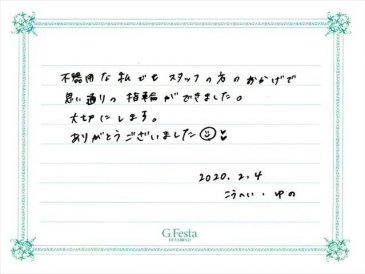 不器用な私でもスタッフの方のおかげで
思い通りの指輪ができました。
大切にします。
ありがとうございました
2020.2.4
こうへい・ゆの
G.Festa